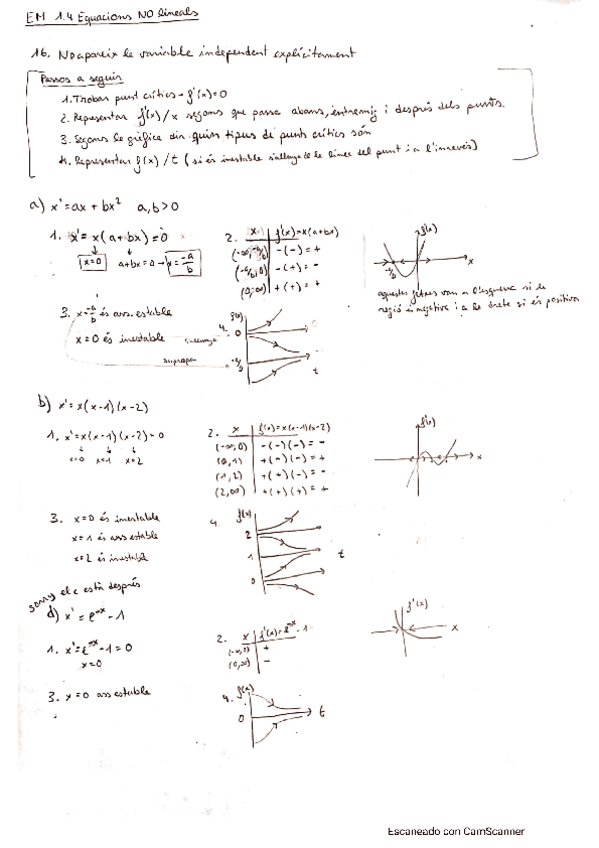 EM 1.4 Equacions NO lineals
16. No apareix la variable independent explícitament
Passos a seguir
1. Trobar punt crítics → f'(x)=0
2. Representar f'(x)/x segons que passa abans, entremig i després dels punts.
3. Segons la gràfica dir quins tipus de punts crítics són
4. Representar f(x)/t (si és inestable s'allunya de la línea del punt i a l'inrevés)
a) x'=ax+bx² a,b>0
1. x'=x(a+bx)=0
x=0 a+bx=0 → x=-a/b
2. x f'(x)=x(a+bx)
(-∞,-a/b) -(-)=+
(-a/b,0) -(+)=-
(0,∞) +(+)=+
f'(x)
-a/b x
aquestes fletxes van a l'esquerra si la
regió és negativa i a la dreta si és positiva
3. x=-a/b és ass. estable
x=0 és inestable
4. f(x)
0
-a/b
t
b) x'=x(x-1)(x-2)
1. x'=x(x-1)(x-2)=0
x=0 x=1 x=2
2. x f'(x)=x(x-1)(x-2)
(-∞,0) -(-)(-)=-
(0,1) +(-)(-)=+
(1,2) +(+)(-)=-
(2,∞) +(+)(+)=+
f'(x)
x
3. x=0 és inestable
x=1 és ass estable
x=2 és inestable
4. f(x)
2
1
0
t
sorry el c està després
d) x'=e^-x -1
1. x'=e^-x -1=0
x=0
2. x f'(x)=e^-x -1
(-∞,0) +
(0,∞) -
f'(x)
x
3. x=0 ass estable
4. f(x)
0
t
Escaneado con CamScanner